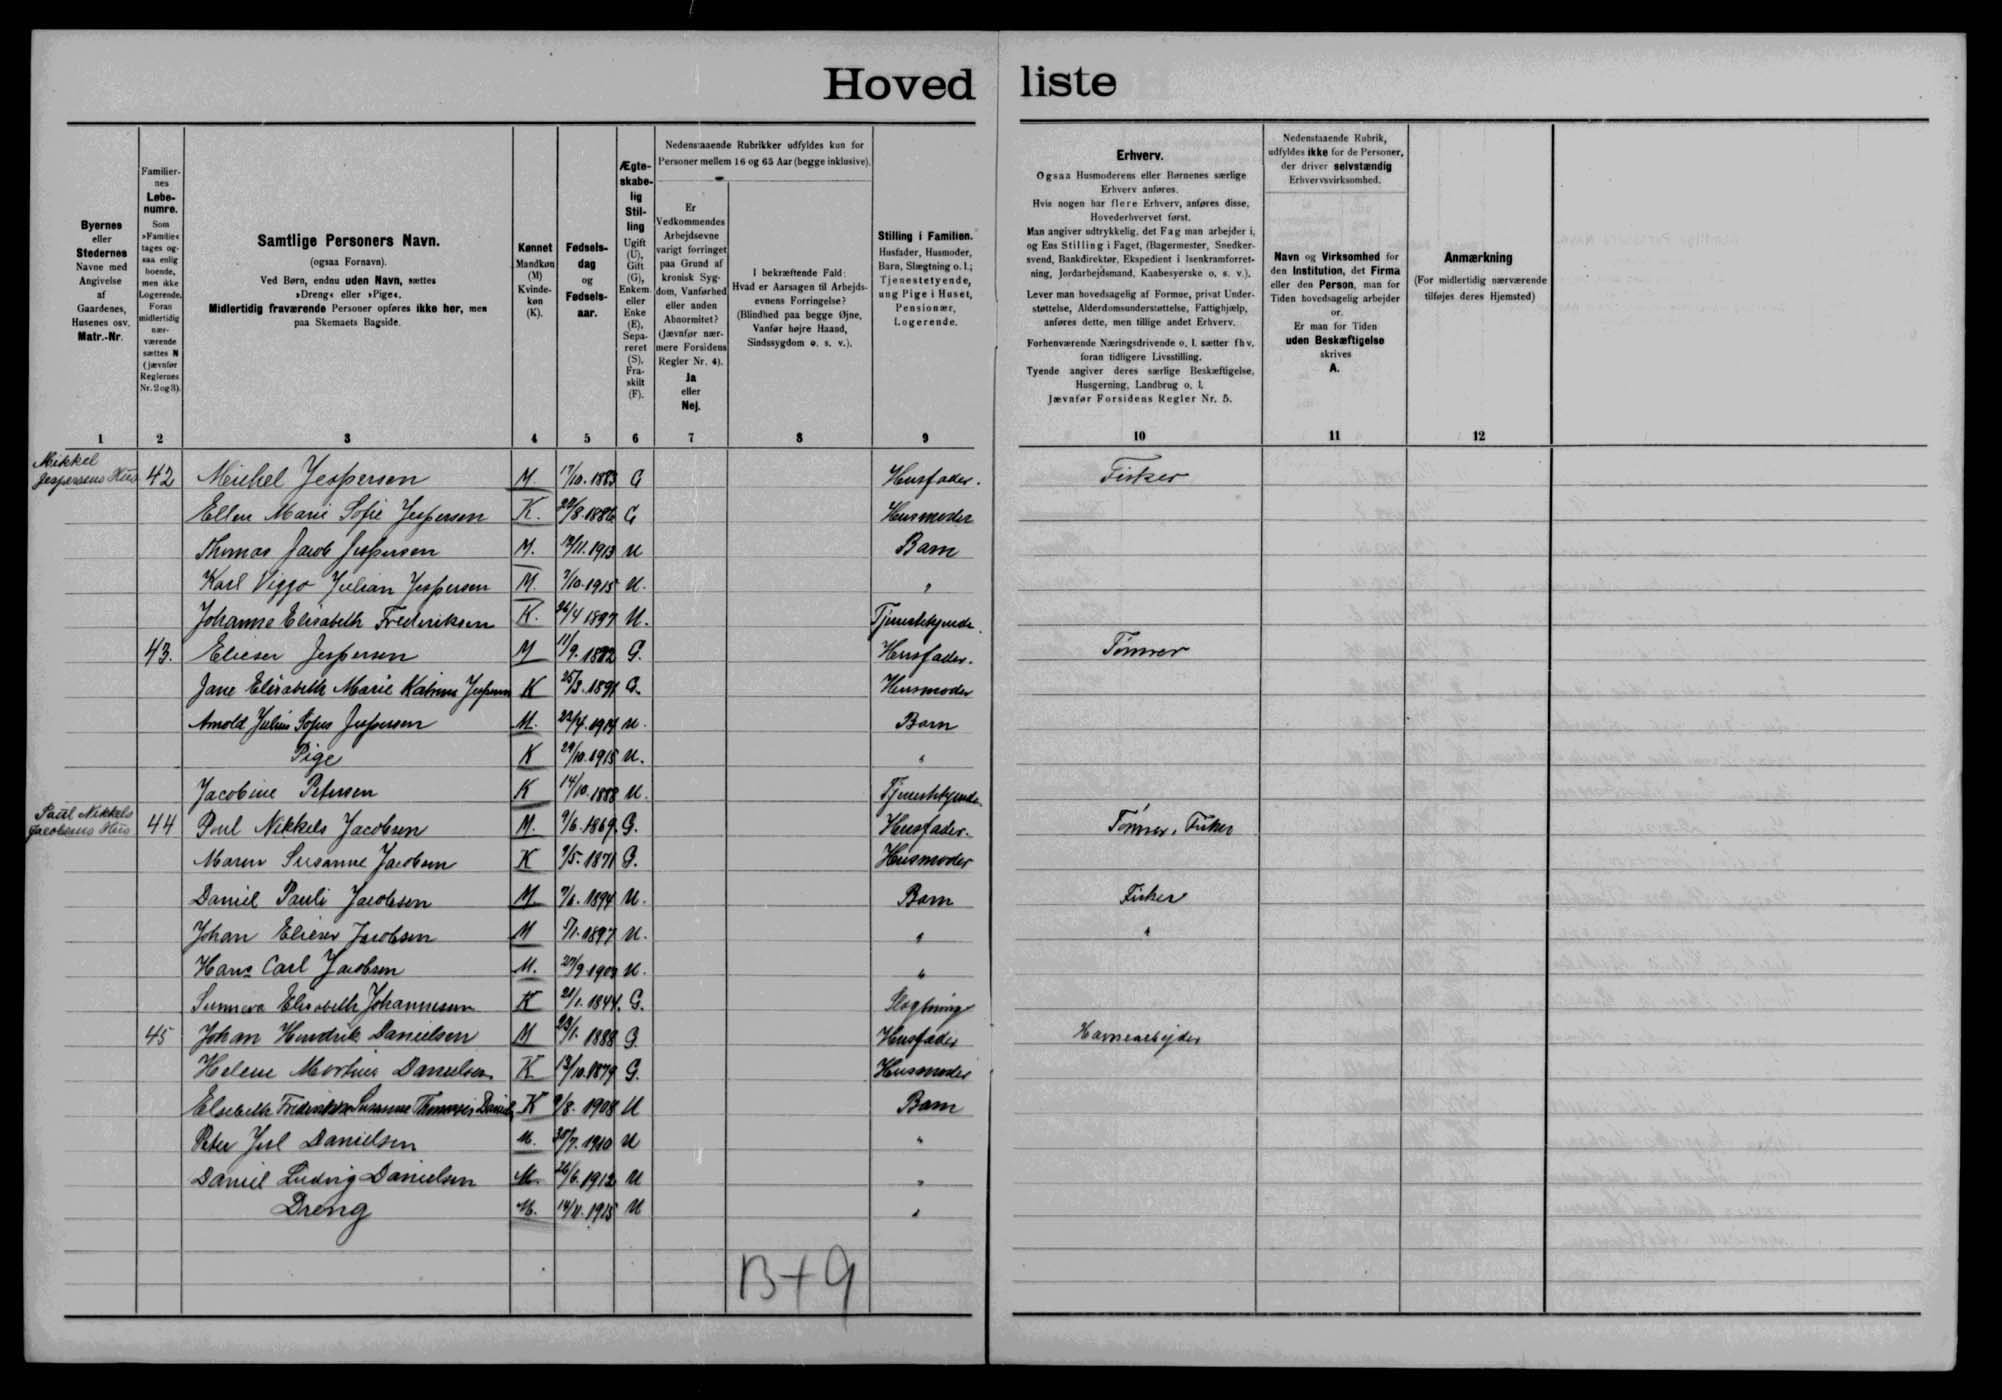 Hoved liste
Byernes
eller
Stedernes
Navne med
Angivelse
af
Gaardenes,
Husenes osv.
Matr.-Nr.
Familier-
nes
Løbe-
numre.
Som
»Familie«
tages og-
saa enlig
boende,
men ikke
Logerende.
Foran
midlertidig
nær-
værende
sættes N
(jævnfør
Reglernes
Nr. 2 og 3).
Samtlige Personers Navn.
(ogsaa Fornavn).
Ved Børn, endnu uden Navn, sættes
»Dreng« eller »Pige«.
Midlertidig fraværende Personer opføres ikke her, men
paa Skemaets Bagside.
Kønnet
Mandkøn
(M)
Kvinde-
køn
(K).
Fødsels-
dag
og
Fødsels-
aar.
Ægte-
skabe-
lig
Stil-
ling
Ugift
(U),
Gift
(G),
Enkem.
eller
Enke
(E),
Sepa-
reret
(S),
Fra-
skilt
(F).
Nedenstaaende Rubrikker udfyldes kun for
Personer mellem 16 og 65 Aar (begge inklusive).
Er
Vedkommendes
Arbejdsevne
varigt forringet
paa Grund af
kronisk Syg-
dom, Vanførhed
eller anden
Abnormitet?
(Jævnfør nær-
mere Forsidens
Regler Nr. 4).
Ja
eller
Nej.
I bekræftende Fald:
Hvad er Aarsagen til Arbejds-
evnens Forringelse?
(Blindhed paa begge Øjne,
Vanfør højre Haand,
Sindssygdom o. s. v.).
Stilling i Familien.
Husfader, Husmoder,
Barn, Slægtning o. l.;
Tjenestetyende,
ung Pige i Huset,
Pensionær,
Logerende.
Erhverv.
Ogsaa Husmoderens eller Børnenes særlige
Erhverv anføres.
Hvis nogen har flere Erhverv, anføres disse,
Hovederhvervet først.
Man angiver udtrykkelig, det Fag man arbejder i,
og Ens Stilling i Faget, (Bagermester, Snedker-
svend, Bankdirektør, Ekspedient i Isenkramforret-
ning, Jordarbejdsmand, Kaabesyerske o. s. v.).
Lever man hovedsagelig af Formue, privat Under-
støttelse, Alderdomsunderstøttelse, Fattighjælp,
anføres dette, men tillige andet Erhverv.
Forhenværende Næringsdrivende o. l. sætter fhv.
foran tidligere Livsstilling.
Tyende angiver deres særlige Beskæftigelse,
Husgerning, Landbrug o. l.
Jævnfør Forsidens Regler Nr. 5.
Nedenstaaende Rubrik,
udfyldes ikke for de Personer,
der driver selvstændig
Erhvervsvirksomhed.
Navn og Virksomhed for
den Institution, det Firma
eller den Person, man for
Tiden hovedsagelig arbejder
for.
Er man for Tiden
uden Beskæftigelse
skrives
A.
Anmærkning
(For midlertidig nærværende
tilføjes deres Hjemsted)
1 2 3 4 5 6 7 8 9 10 11 12
Mikkel
Jespersens Hus 42 Michel Jespersen M. 17/10.1883 G Husfader. Fisker
Ellen Marie Sofie Jespersen K. 29/8.1886 G Husmoder
Thomas Jacob Jespersen M. 13/11.1913 U Barn
Karl Viggo Julian Jespersen M. 7/10.1915 U. "
Johanne Elisabeth Frederiksen K. 26/4 1897 U. Tjenestetyende.
43. Elieser Jespersen M 11/9.1882 G. Husfader. Tømrer
Jane Elisabeth Marie Katrine Jespersen K 25/3.1891 G. Husmoder
Arnold Julius Sofus Jespersen M. 22/4.1914 U. Barn
Pige K 29/10.1915 U. "
Jacobine Petersen K 14/10.1888 U. Tjenestetyende
Paul Nikkels
Jacobsens Hus 44 Poul Nikkels Jacobsen M. 9/6.1869. G. Husfader. Tømrer, Fisker
Maren Susanne Jacobsen K 9/5.1871 G. Husmoder
Daniel Pauli Jacobsen M 7/6.1894 U. Barn Fisker
Johan Elieser Jacobsen M 5/1.1897 U. " "
Hans Carl Jacobsen M. 27/9.1909 U. "
Sunneva Elisabeth Johannesen K 21/1.1844. G. Slægtning
45 Johan Hendrik Danielsen M 23/1.1888 G. Husfader Havnearbejder
Helene Mortine Danielsen K 13/10.1879 G. Husmoder
Elsebeth Frederikke Susanne Thomasine K 9/8.1908 U Barn
Peter Juel Danielsen M. 30/7.1910 U "
Daniel Ludvig Danielsen M. 26/6.1912 U "
Dreng M. 14/11.1915 U "
13+9